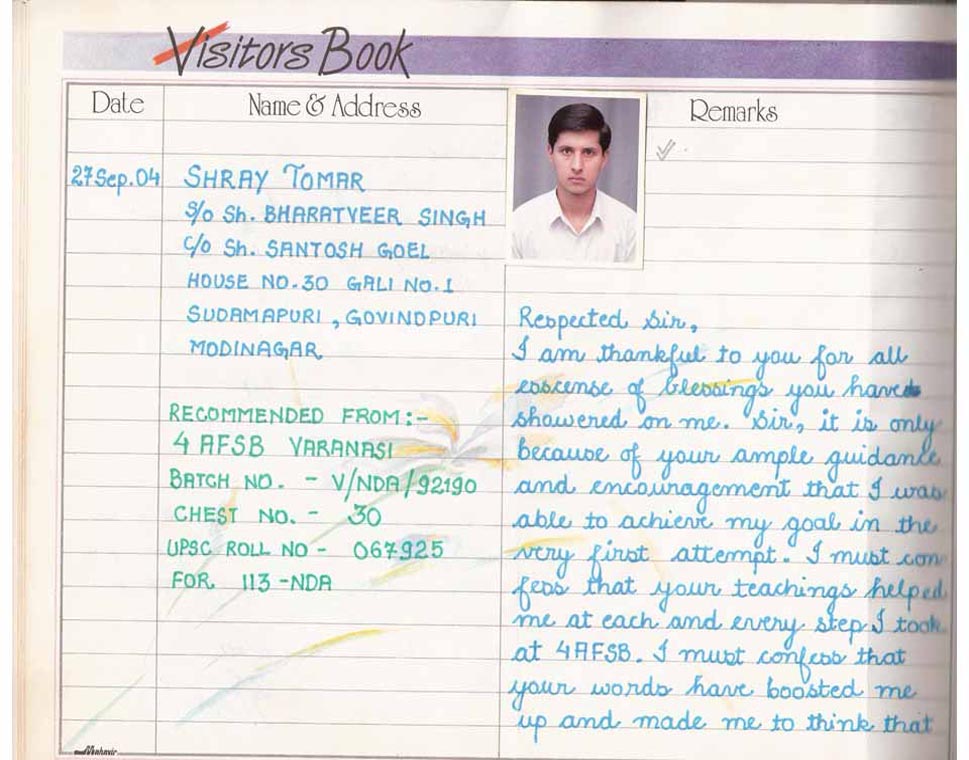 Visitors Book
Date
Name & Address
Remarks
27 Sep. 04
SHRAY TOMAR
S/o Sh. BHARATVEER SINGH
C/o Sh. SANTOSH GOEL
HOUSE NO. 30 GALI NO. 1
SUDAMAPURI, GOVINDPURI
MODINAGAR
RECOMMENDED FROM:-
4 AFSB VARANASI
BATCH NO. - V/NDA/92190
CHEST NO. - 30
UPSC ROLL NO - 067925
FOR 113-NDA
Respected Sir,
I am thankful to you for all
esscense of blessings you have
showered on me. Sir, it is only
because of your ample guidance
and encouragement that I was
able to achieve my goal in the
very first attempt. I must con
fess that your teachings helped
me at each and every step I took
at 4AFSB. I must confess that
your words have boosted me
up and made me to think that